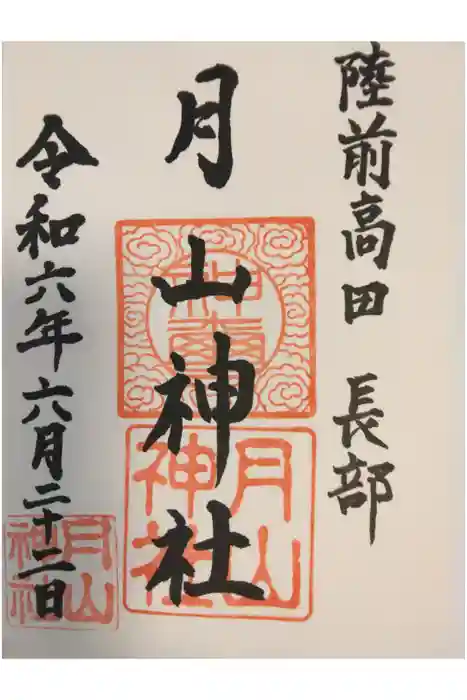 陸前高田 長部
月山神社
令和六年六月二十二日
月山
神社
月山
神社